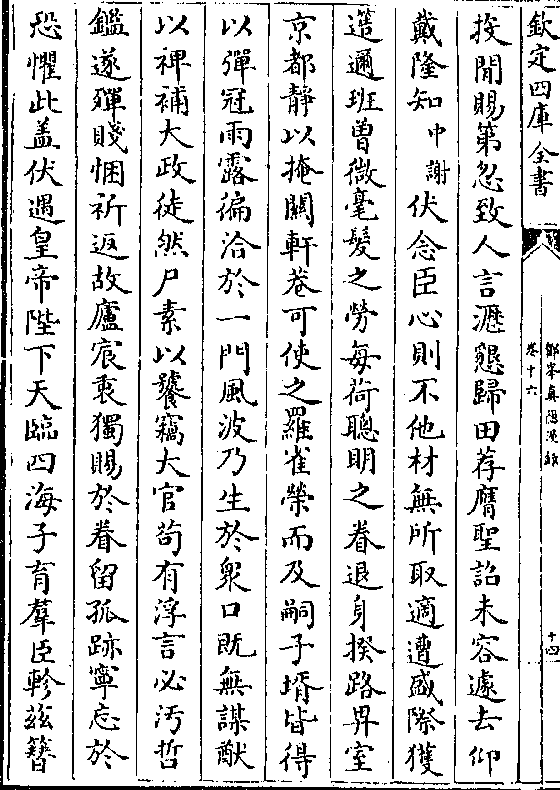 欽定四庫全書
鄮峯真隱漫録
卷十六
十四
投閒賜第忽致人言瀝懇歸田荐膺聖詔未容遽去仰
戴隆知中謝伏念臣心則不他材無所取適遭盛際獲
簉邇班曽微毫髮之勞每荷聰明之眷退身揆路畀室
京都靜以掩關軒巷可使之羅雀榮而及嗣子壻皆得
以彈冠雨露徧洽於一門風波乃生於衆口既無謀猷
以裨補大政徒然尸素以饕竊大官茍有浮言必汚哲
鑑遂殫賤悃祈返故廬宸衷獨賜於眷留孤跡寧忘於
恐懼此盖伏遇皇帝陛下天臨四海子育羣臣軫兹簪